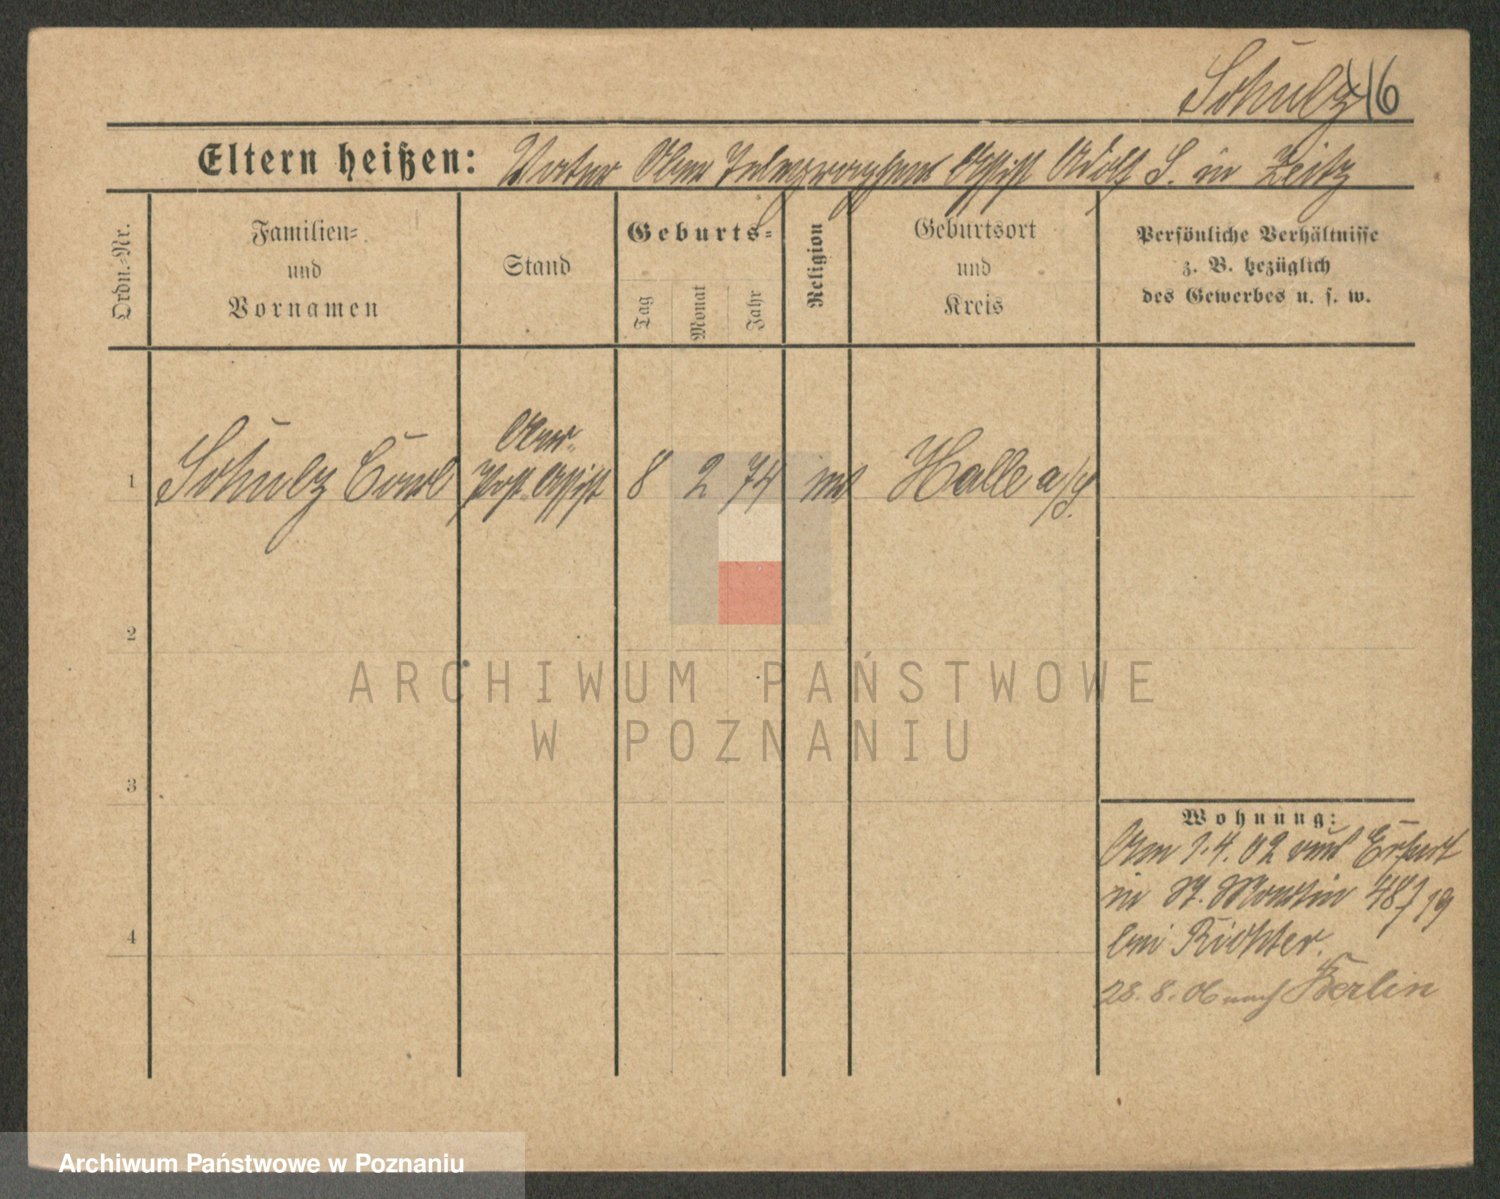 Schulz 16
Eltern heißen: Vater Ober Telegraphen Assist Adolf S. in Zeitz
Ordn.-Nr.
Familien-
und
Vornamen
Stand
Geburts-
Tag
Monat
Jahr
Religion
Geburtsort
und
Kreis
Persönliche Verhältnisse
z. B. bezüglich
des Gewerbes u. s. w.
Ober-
1 Schulz Carl Post Assist 8 2 74 ev Halle a/S.
2
ARCHIWUM PAŃSTWOWE
W POZNANIU
3
Wohnung:
Am 1.4.02 aus Erfurt
in St. Martin 48
4
bei Richter.
28.8.06 nach Berlin
Archiwum Państwowe w Poznaniu